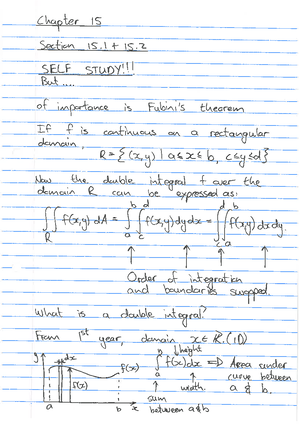 Chapter 15
Section 15.1 + 15.2
SELF STUDY!!!
But ....
of importance is Fubini's theorem
If f is continuous on a rectangular
domain,
R = {(x,y) | a ≤ x ≤ b, c ≤ y ≤ d}
Now the double integral f over the
domain R can be expressed as:
∬_R f(x,y) dA = ∫_a^b ∫_c^d f(x,y) dy dx = ∫_c^d ∫_a^b f(x,y) dx dy
Order of integration
and boundaries swopped.
What is a double integral?
From 1st year, domain x ∈ ℝ. (1D)
y dx f(x) f(x) a b x
height
∫_a^b f(x) dx ⇒ Area under
curve between
a & b.
width.
sum
between a & b